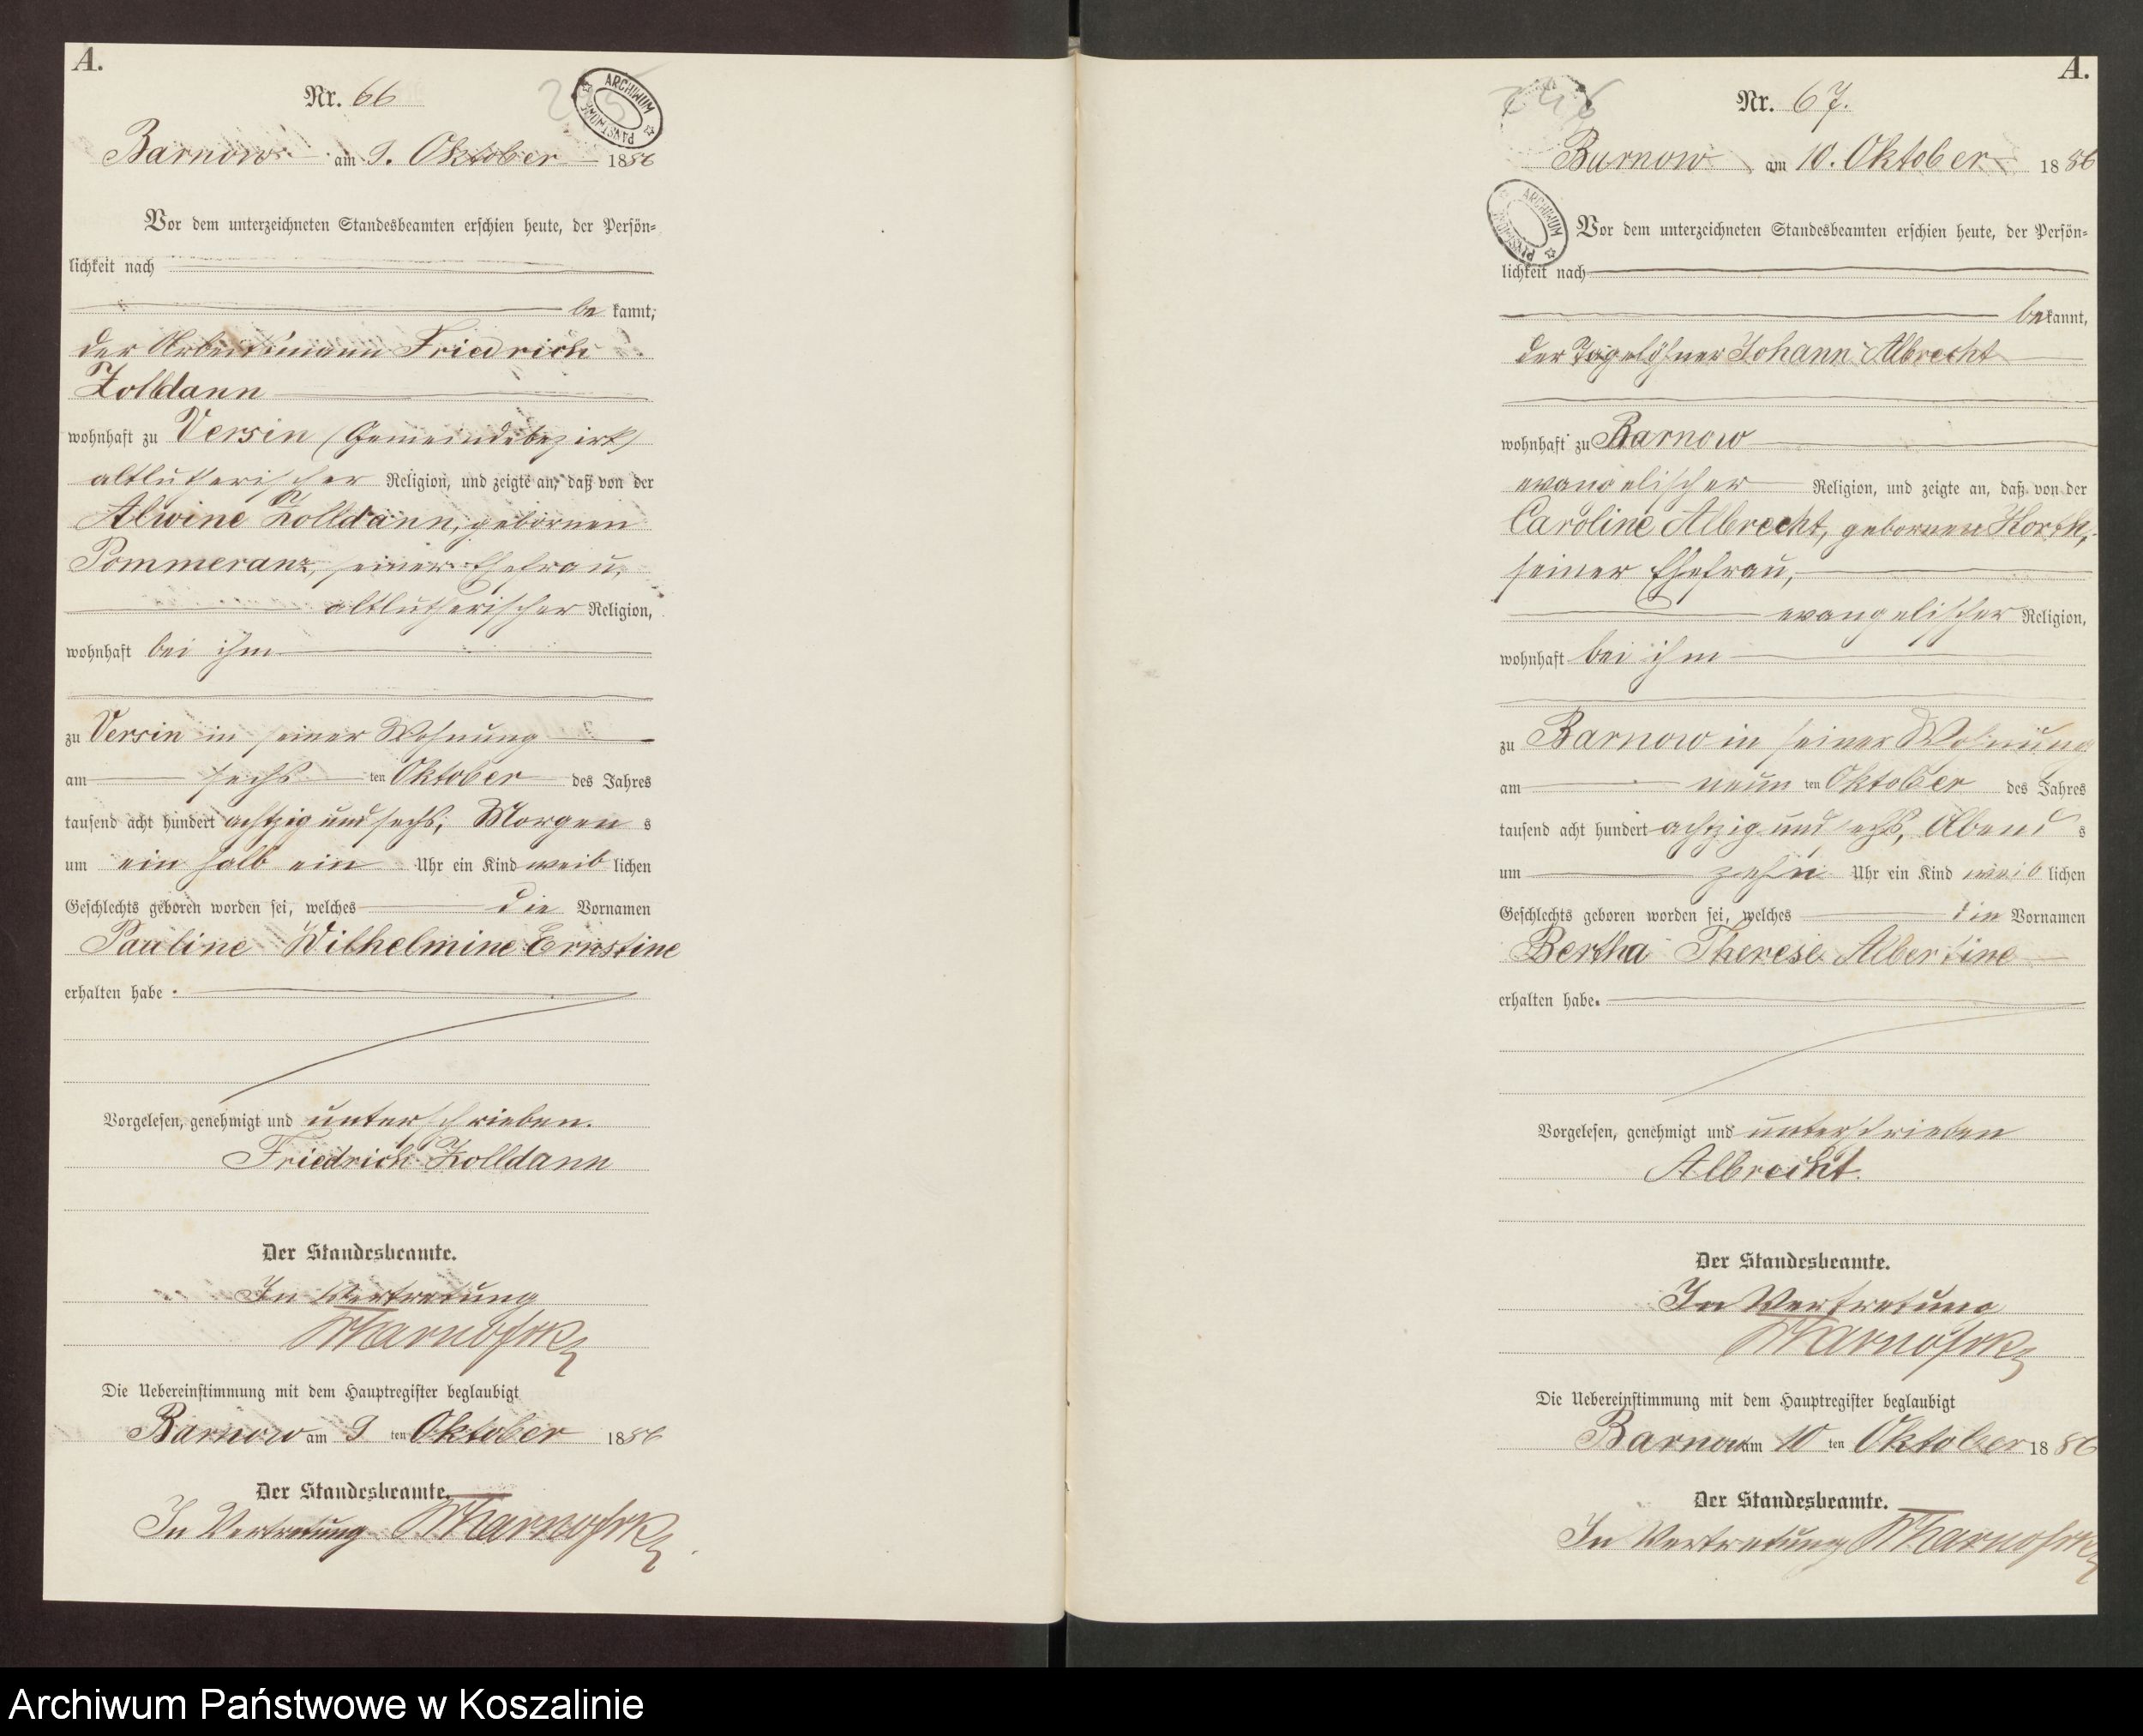 A.
Nr. 66
ARCHIWUM PAŃSTWOWE
Barnow am 9. Oktober 1886
Vor dem unterzeichneten Standesbeamten erschien heute, der Persön=
lichkeit nach
be kannt,
der Arbeitsmann Friedrich
Zolldann
wohnhaft zu Versin (Gemeindebezirk)
altlutherischer Religion, und zeigte an, daß von der
Alwine Zolldann, gebornen
Pommeranz, seiner Ehefrau,
altlutherischer Religion,
wohnhaft bei ihm
zu Versin in seiner Wohnung
am sechs ten Oktober des Jahres
tausend acht hundert achtzig und sechs, Morgen s
um ein halb ein Uhr ein Kind weib lichen
Geschlechts geboren worden sei, welches die Vornamen
Pauline Wilhelmine Ernstine
erhalten habe.
Vorgelesen, genehmigt und unterschrieben.
Friedrich Zolldann
Der Standesbeamte.
In Vertretung
Die Uebereinstimmung mit dem Hauptregister beglaubigt
Barnow am 9 ten Oktober 1886
Der Standesbeamte.
In Vertretung
A.
Nr. 67.
Barnow am 10. Oktober 1886
ARCHIWUM PAŃSTWOWE
Vor dem unterzeichneten Standesbeamten erschien heute, der Persön=
lichkeit nach
be kannt,
der Tagelöhner Johann Albrecht
wohnhaft zu Barnow
evangelischer Religion, und zeigte an, daß von der
Caroline Albrecht, gebornen Korth,
seiner Ehefrau,
evangelischer Religion,
wohnhaft bei ihm
zu Barnow in seiner Wohnung
am neun ten Oktober des Jahres
tausend acht hundert achtzig und sechs, Abend s
um zehn Uhr ein Kind weib lichen
Geschlechts geboren worden sei, welches die Vornamen
Bertha Therese Albertine
erhalten habe.
Vorgelesen, genehmigt und unterschrieben
Albrecht.
Der Standesbeamte.
In Vertretung
Die Uebereinstimmung mit dem Hauptregister beglaubigt
Barnow am 10 ten Oktober 1886
Der Standesbeamte.
In Vertretung
Archiwum Państwowe w Koszalinie